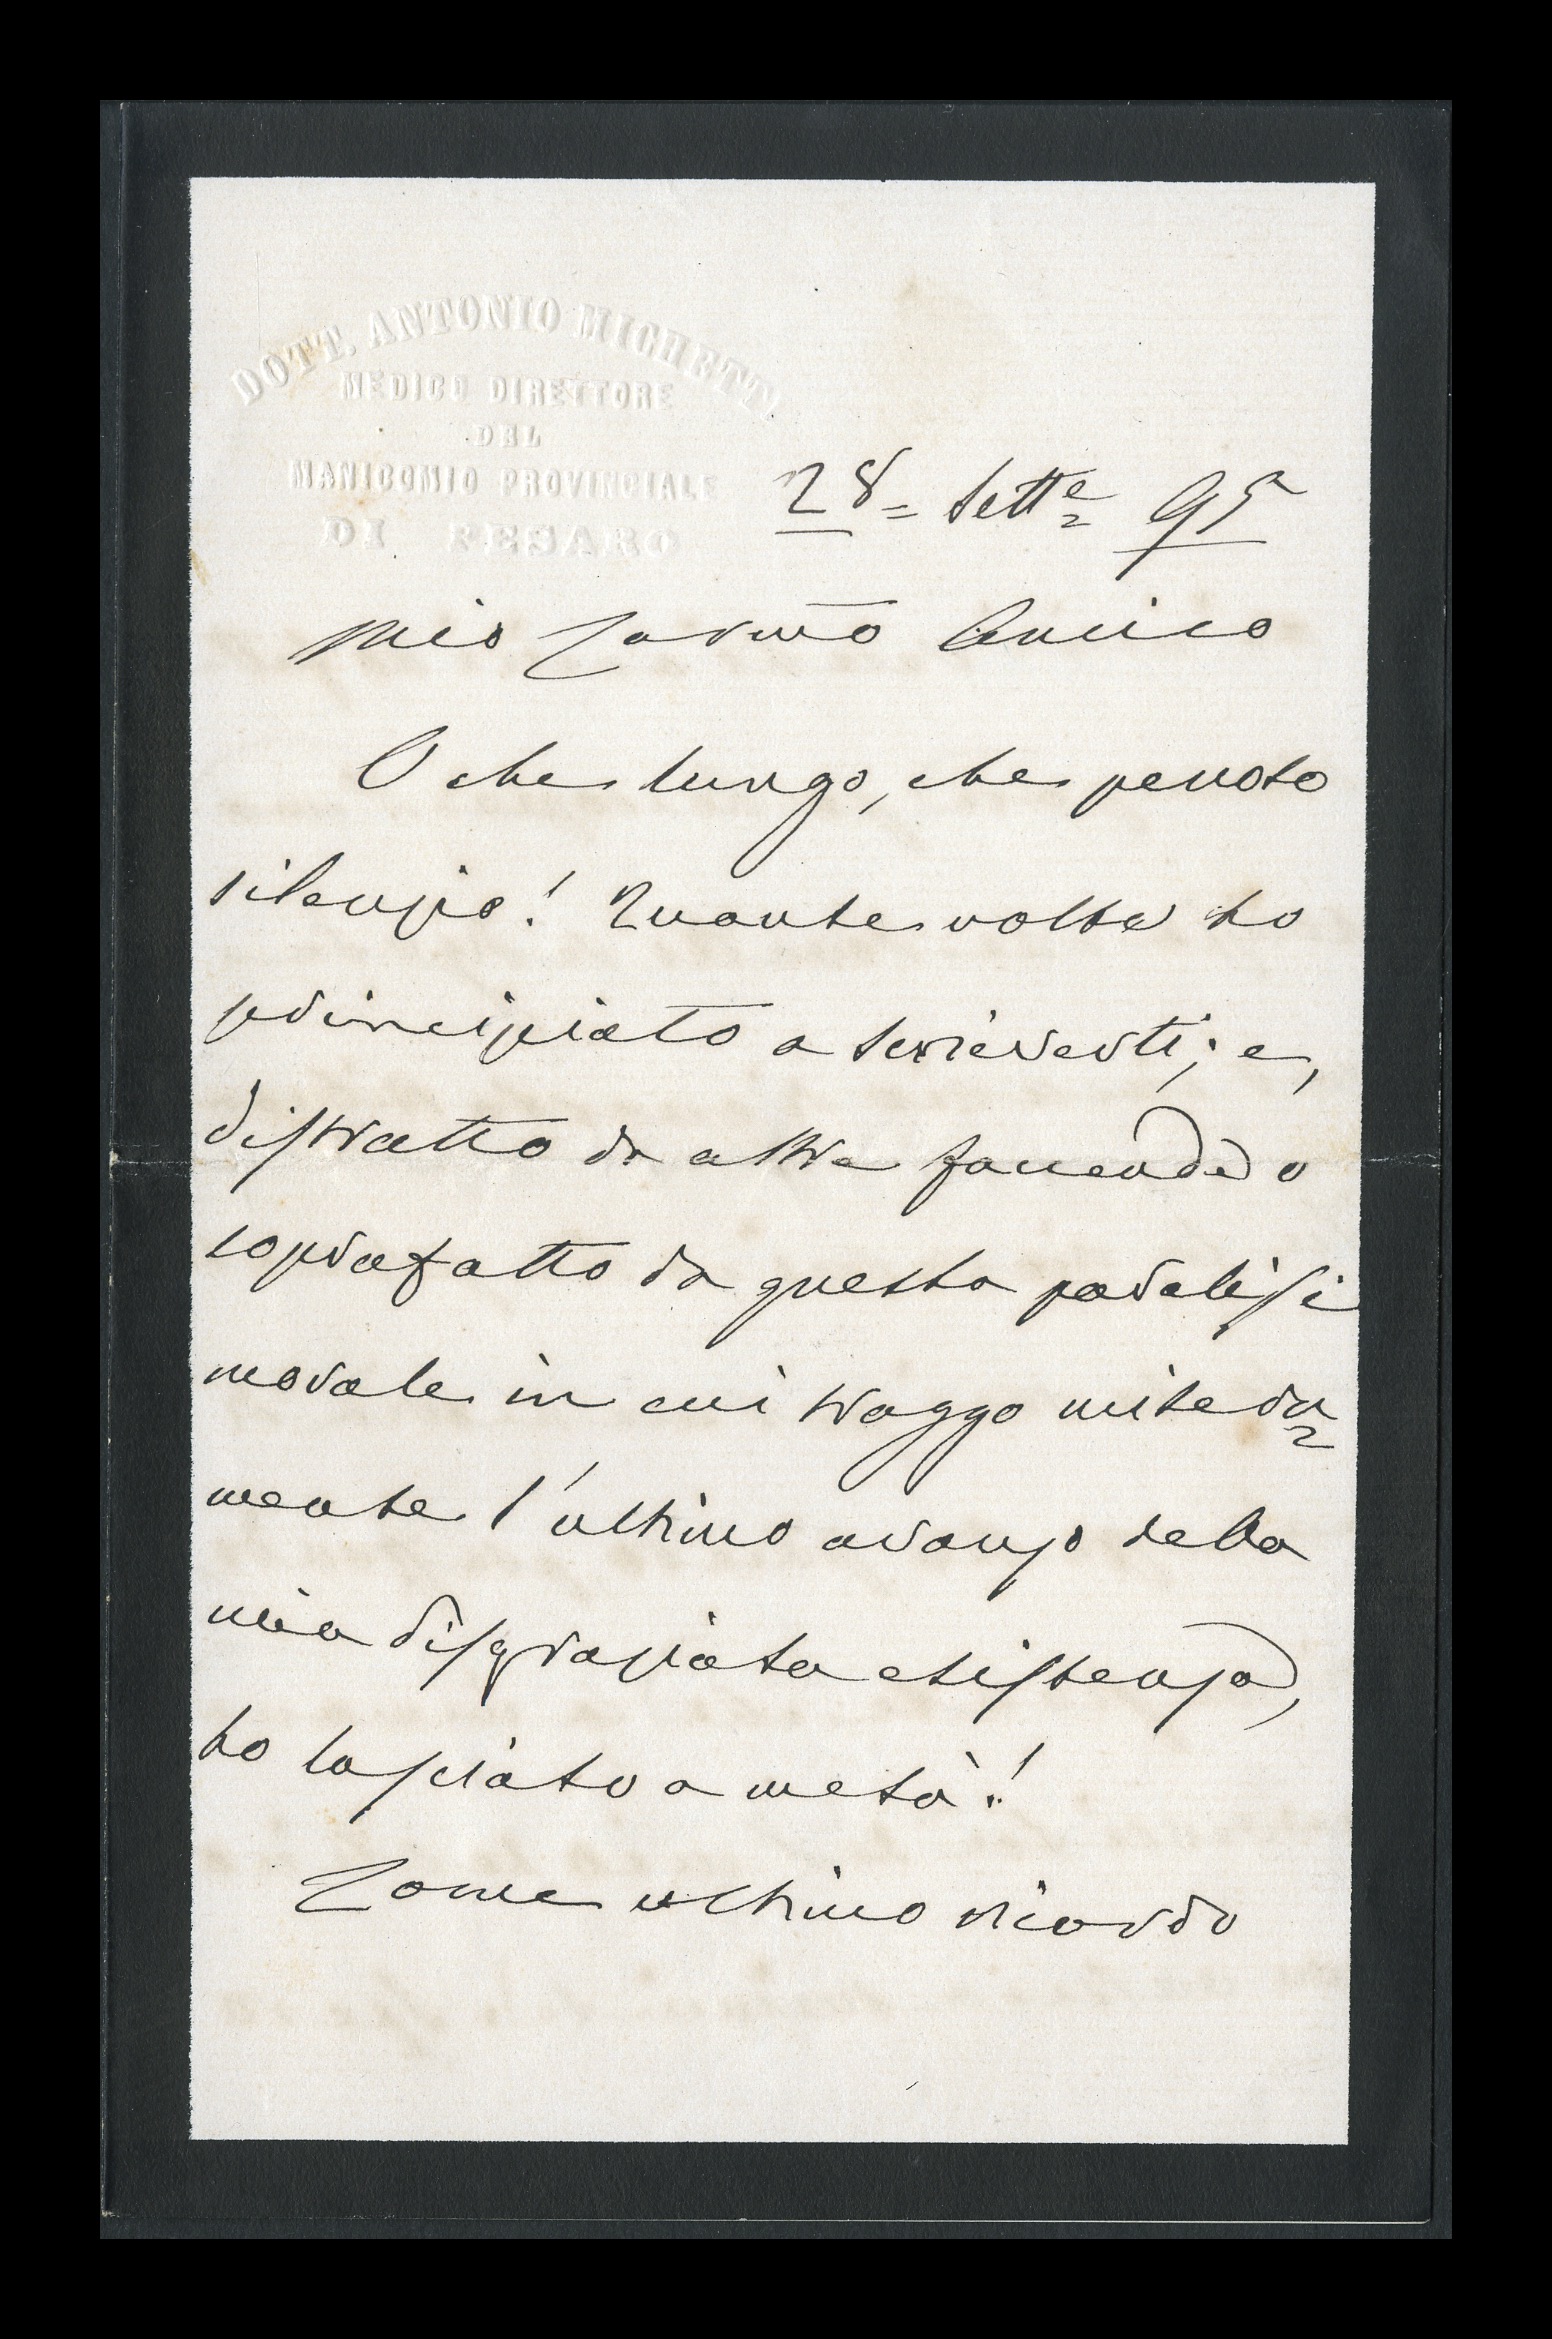 DOTT. ANTONIO MICHETTI
MEDICO DIRETTORE
DEL
MANICOMIO PROVINCIALE
DI PESARO
28= Sett.e 95
Mio Carmo Amico
O che lungo, che penoso
silenzio! Quante volte ho
principiato a scriverti; e,
distratto da altre faccende o
soprafatto da questa paralisi
morale in cui traggo misera=
mente l'ultimo avanzo della
mia disgraziata esistenza,
ho lasciato a metà!
Come ultimo ricordo